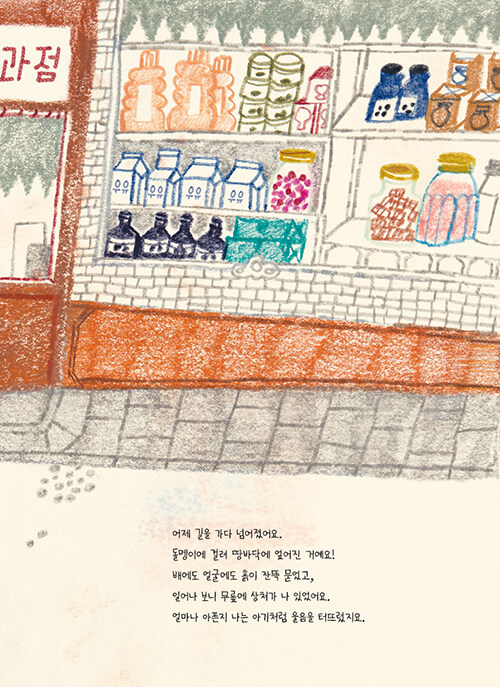 과점
우유
우유
우유
우유
어제 길을 가다 넘어졌어요.
돌멩이에 걸려 땅바닥에 엎어진 거예요!
배에도 얼굴에도 흙이 잔뜩 묻었고,
일어나 보니 무릎에 상처가 나 있었어요.
얼마나 아픈지 나는 아기처럼 울음을 터뜨렸지요.